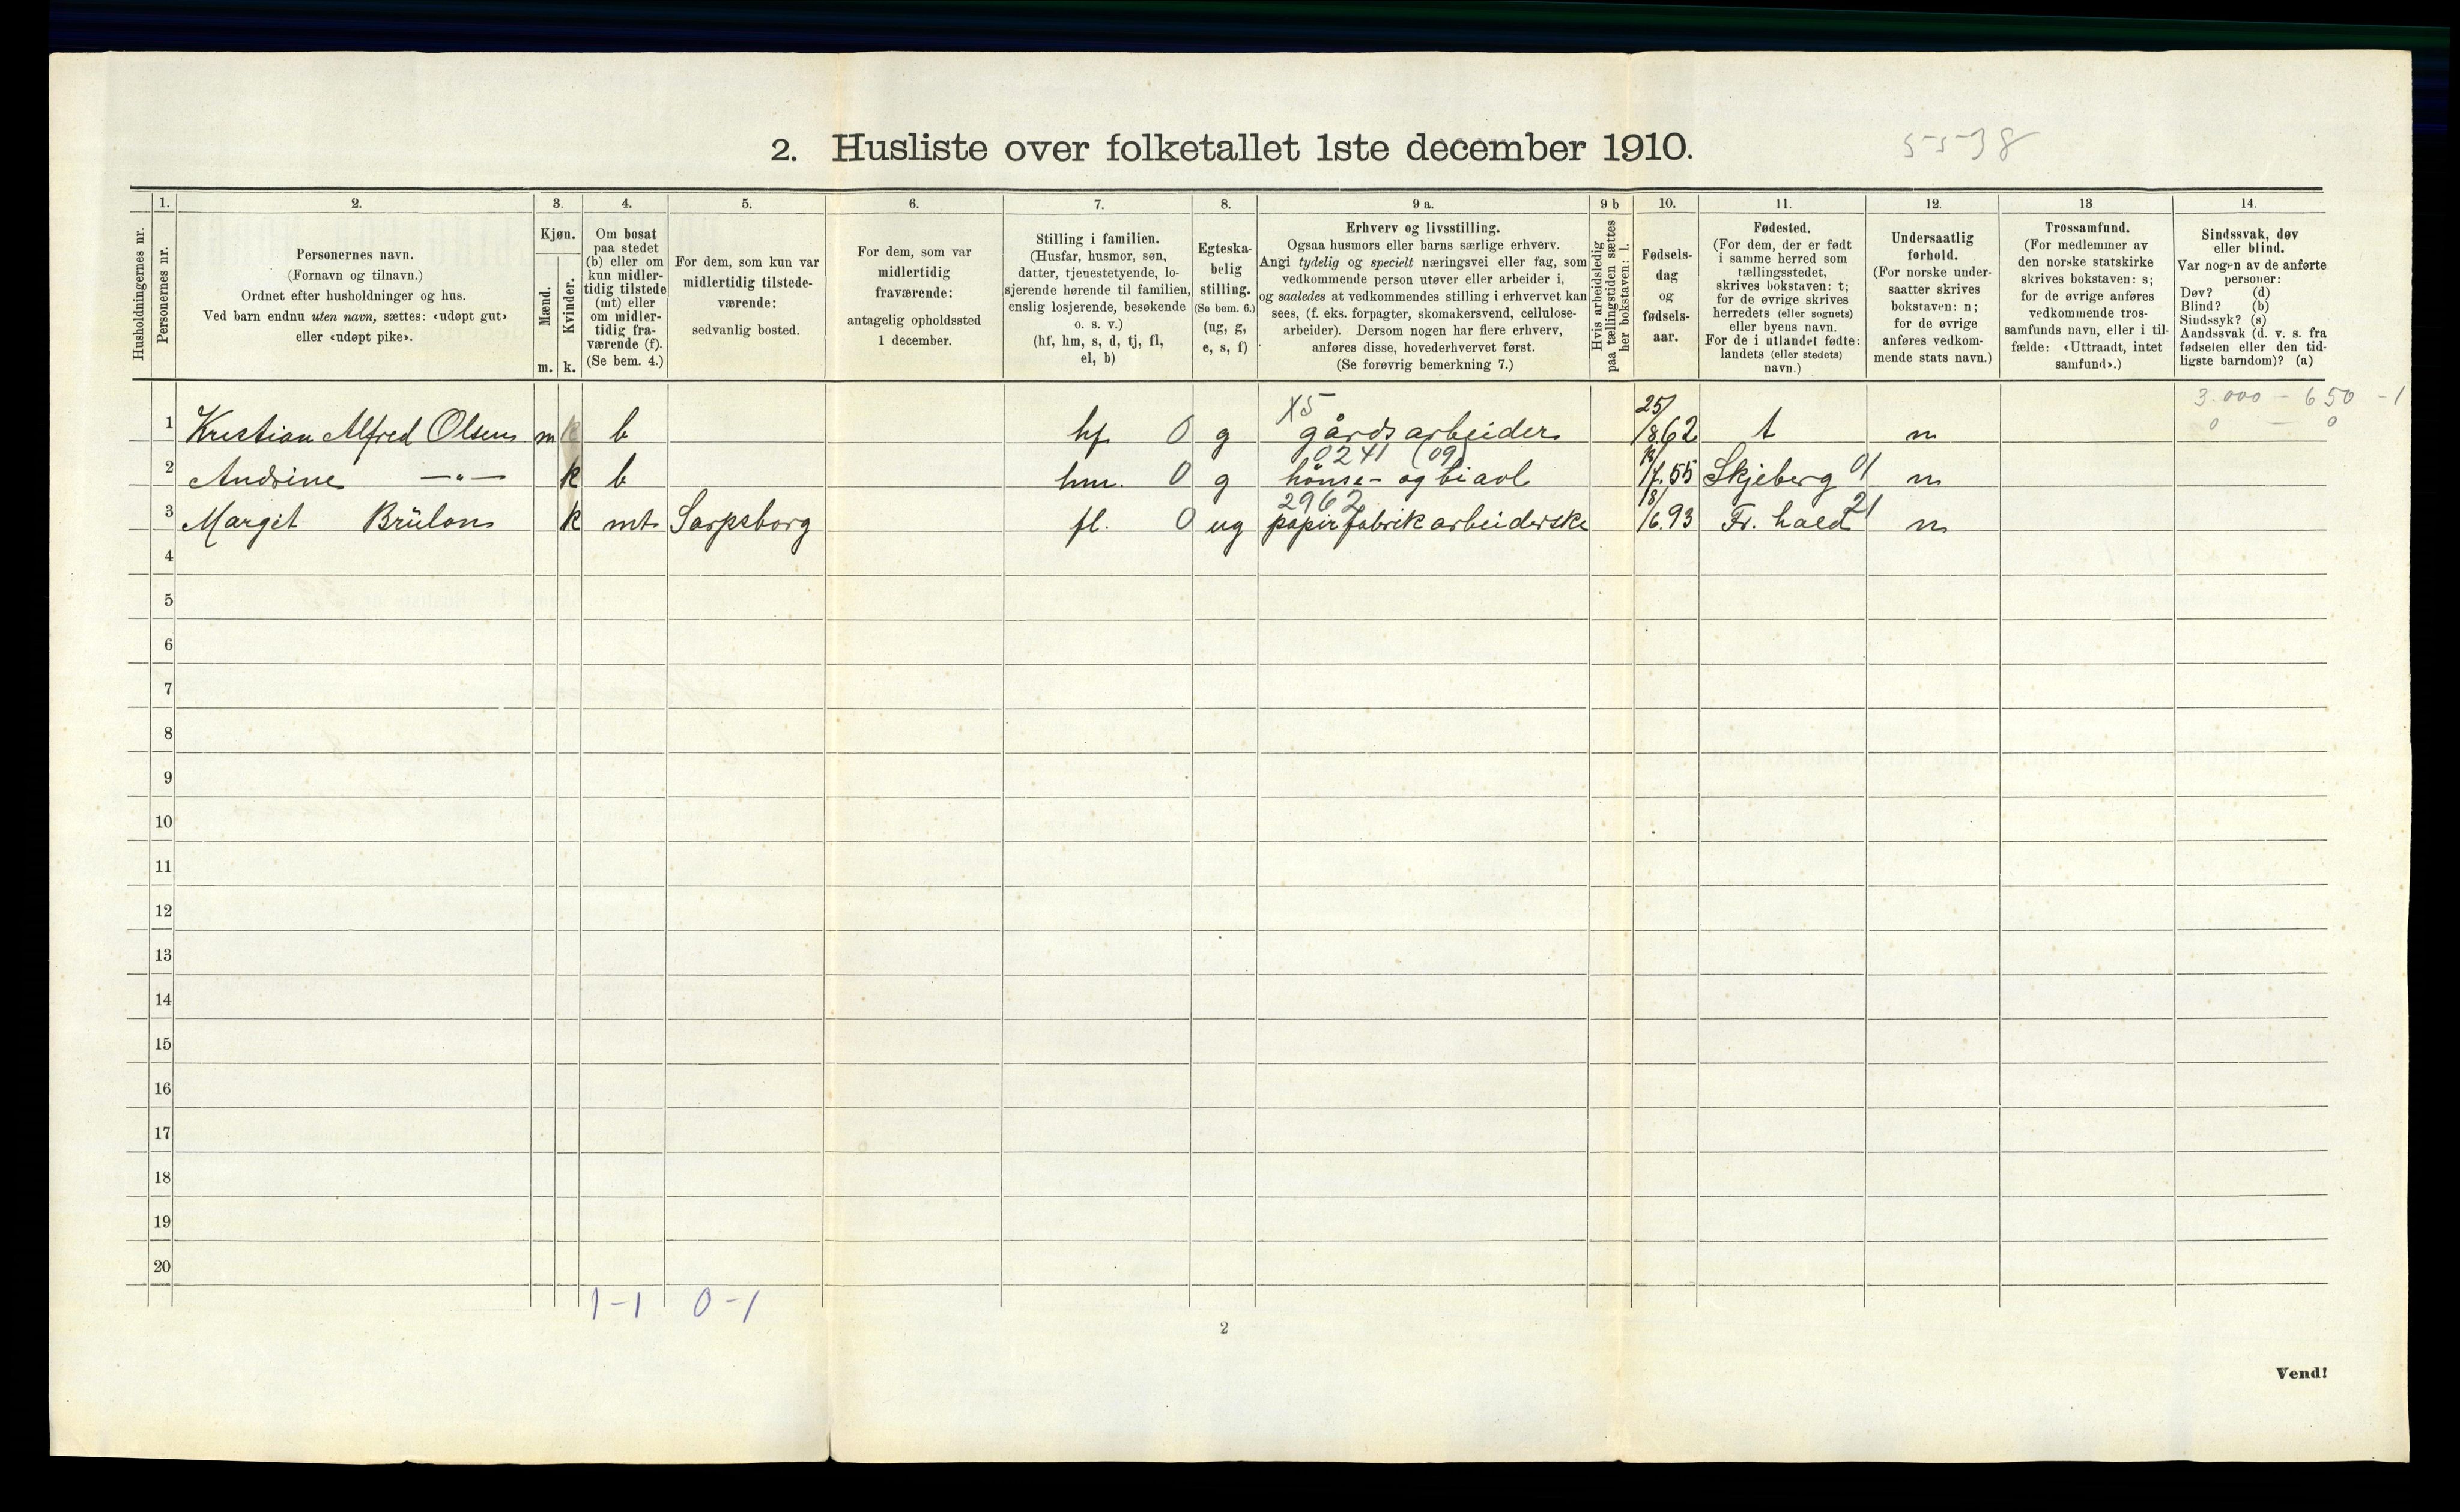 2. Husliste over folketallet 1ste december 1910.
5-5-38
1.
2.
3.
4.
5.
6.
7.
8.
9 a.
9 b
10.
11.
12.
13
14.
Husholdningernes nr.
Personernes nr.
Personernes navn.
(Fornavn og tilnavn.)
Ordnet efter husholdninger og hus.
Ved barn endnu uten navn, sættes: «udøpt gut»
eller «udøpt pike».
Kjøn.
Mænd.
Kvinder.
m.
k.
Om bosat
paa stedet
(b) eller om
kun midler-
tidig tilstede
(mt) eller
om midler-
tidig fra-
værende (f).
(Se bem. 4.)
For dem, som kun var
midlertidig tilstede-
værende:
sedvanlig bosted.
For dem, som var
midlertidig
fraværende:
antagelig opholdssted
1 december.
Stilling i familien.
(Husfar, husmor, søn,
datter, tjenestetyende, lo-
sjerende hørende til familien,
enslig losjerende, besøkende
o. s. v.)
(hf, hm, s, d, tj, fl,
el, b)
Egteska-
belig
stilling.
(Se bem. 6.)
(ug, g,
e, s, f)
Erhverv og livsstilling.
Ogsaa husmors eller barns særlige erhverv.
Angi tydelig og specielt næringsvei eller fag, som
vedkommende person utøver eller arbeider i,
og saaledes at vedkommendes stilling i erhvervet kan
sees, (f. eks. forpagter, skomakersvend, cellulose-
arbeider). Dersom nogen har flere erhverv,
anføres disse, hovederhvervet først.
(Se forøvrig bemerkning 7.)
Hvis arbeidsledig
paa tællingstiden sættes
her bokstaven: l.
Fødsels-
dag
og
fødsels-
aar.
Fødested.
(For dem, der er født
i samme herred som
tællingsstedet,
skrives bokstaven: t;
for de øvrige skrives
herredets (eller sognets)
eller byens navn.
For de i utlandet fødte:
landets (eller stedets)
navn.)
Undersaatlig
forhold.
(For norske under-
saatter skrives
bokstaven: n;
for de øvrige
anføres vedkom-
mende stats navn.)
Trossamfund.
(For medlemmer av
den norske statskirke
skrives bokstaven: s;
for de øvrige anføres
vedkommende tros-
samfunds navn, eller i til-
fælde: «Uttraadt, intet
samfund».)
Sindssvak, døv
eller blind.
Var nogen av de anførte
personer:
Døv? (d)
Blind? (b)
Sindssyk? (s)
Aandssvak (d. v. s. fra
fødselen eller den tid-
ligste barndom)? (a)
3.000 - 650 - 1
0 - 0
X5
1 Kristian Alfred Olsen m b hf 0 g gårdsarbeider 25/8.62 t n
0241 (09)
2 Andrine —"— k b hm. 0 g hönse- og biavl 13/7.55 Skjeberg 01 n
2962
3 Margit Brülon k mt Sarpsborg fl. 0 ug papirfabrikarbeiderske 18/6.93 Fr. hald 21 n
4
5
6
7
8
9
10
11
12
13
14
15
16
17
18
19
20
1-1 0-1
2
Vend!